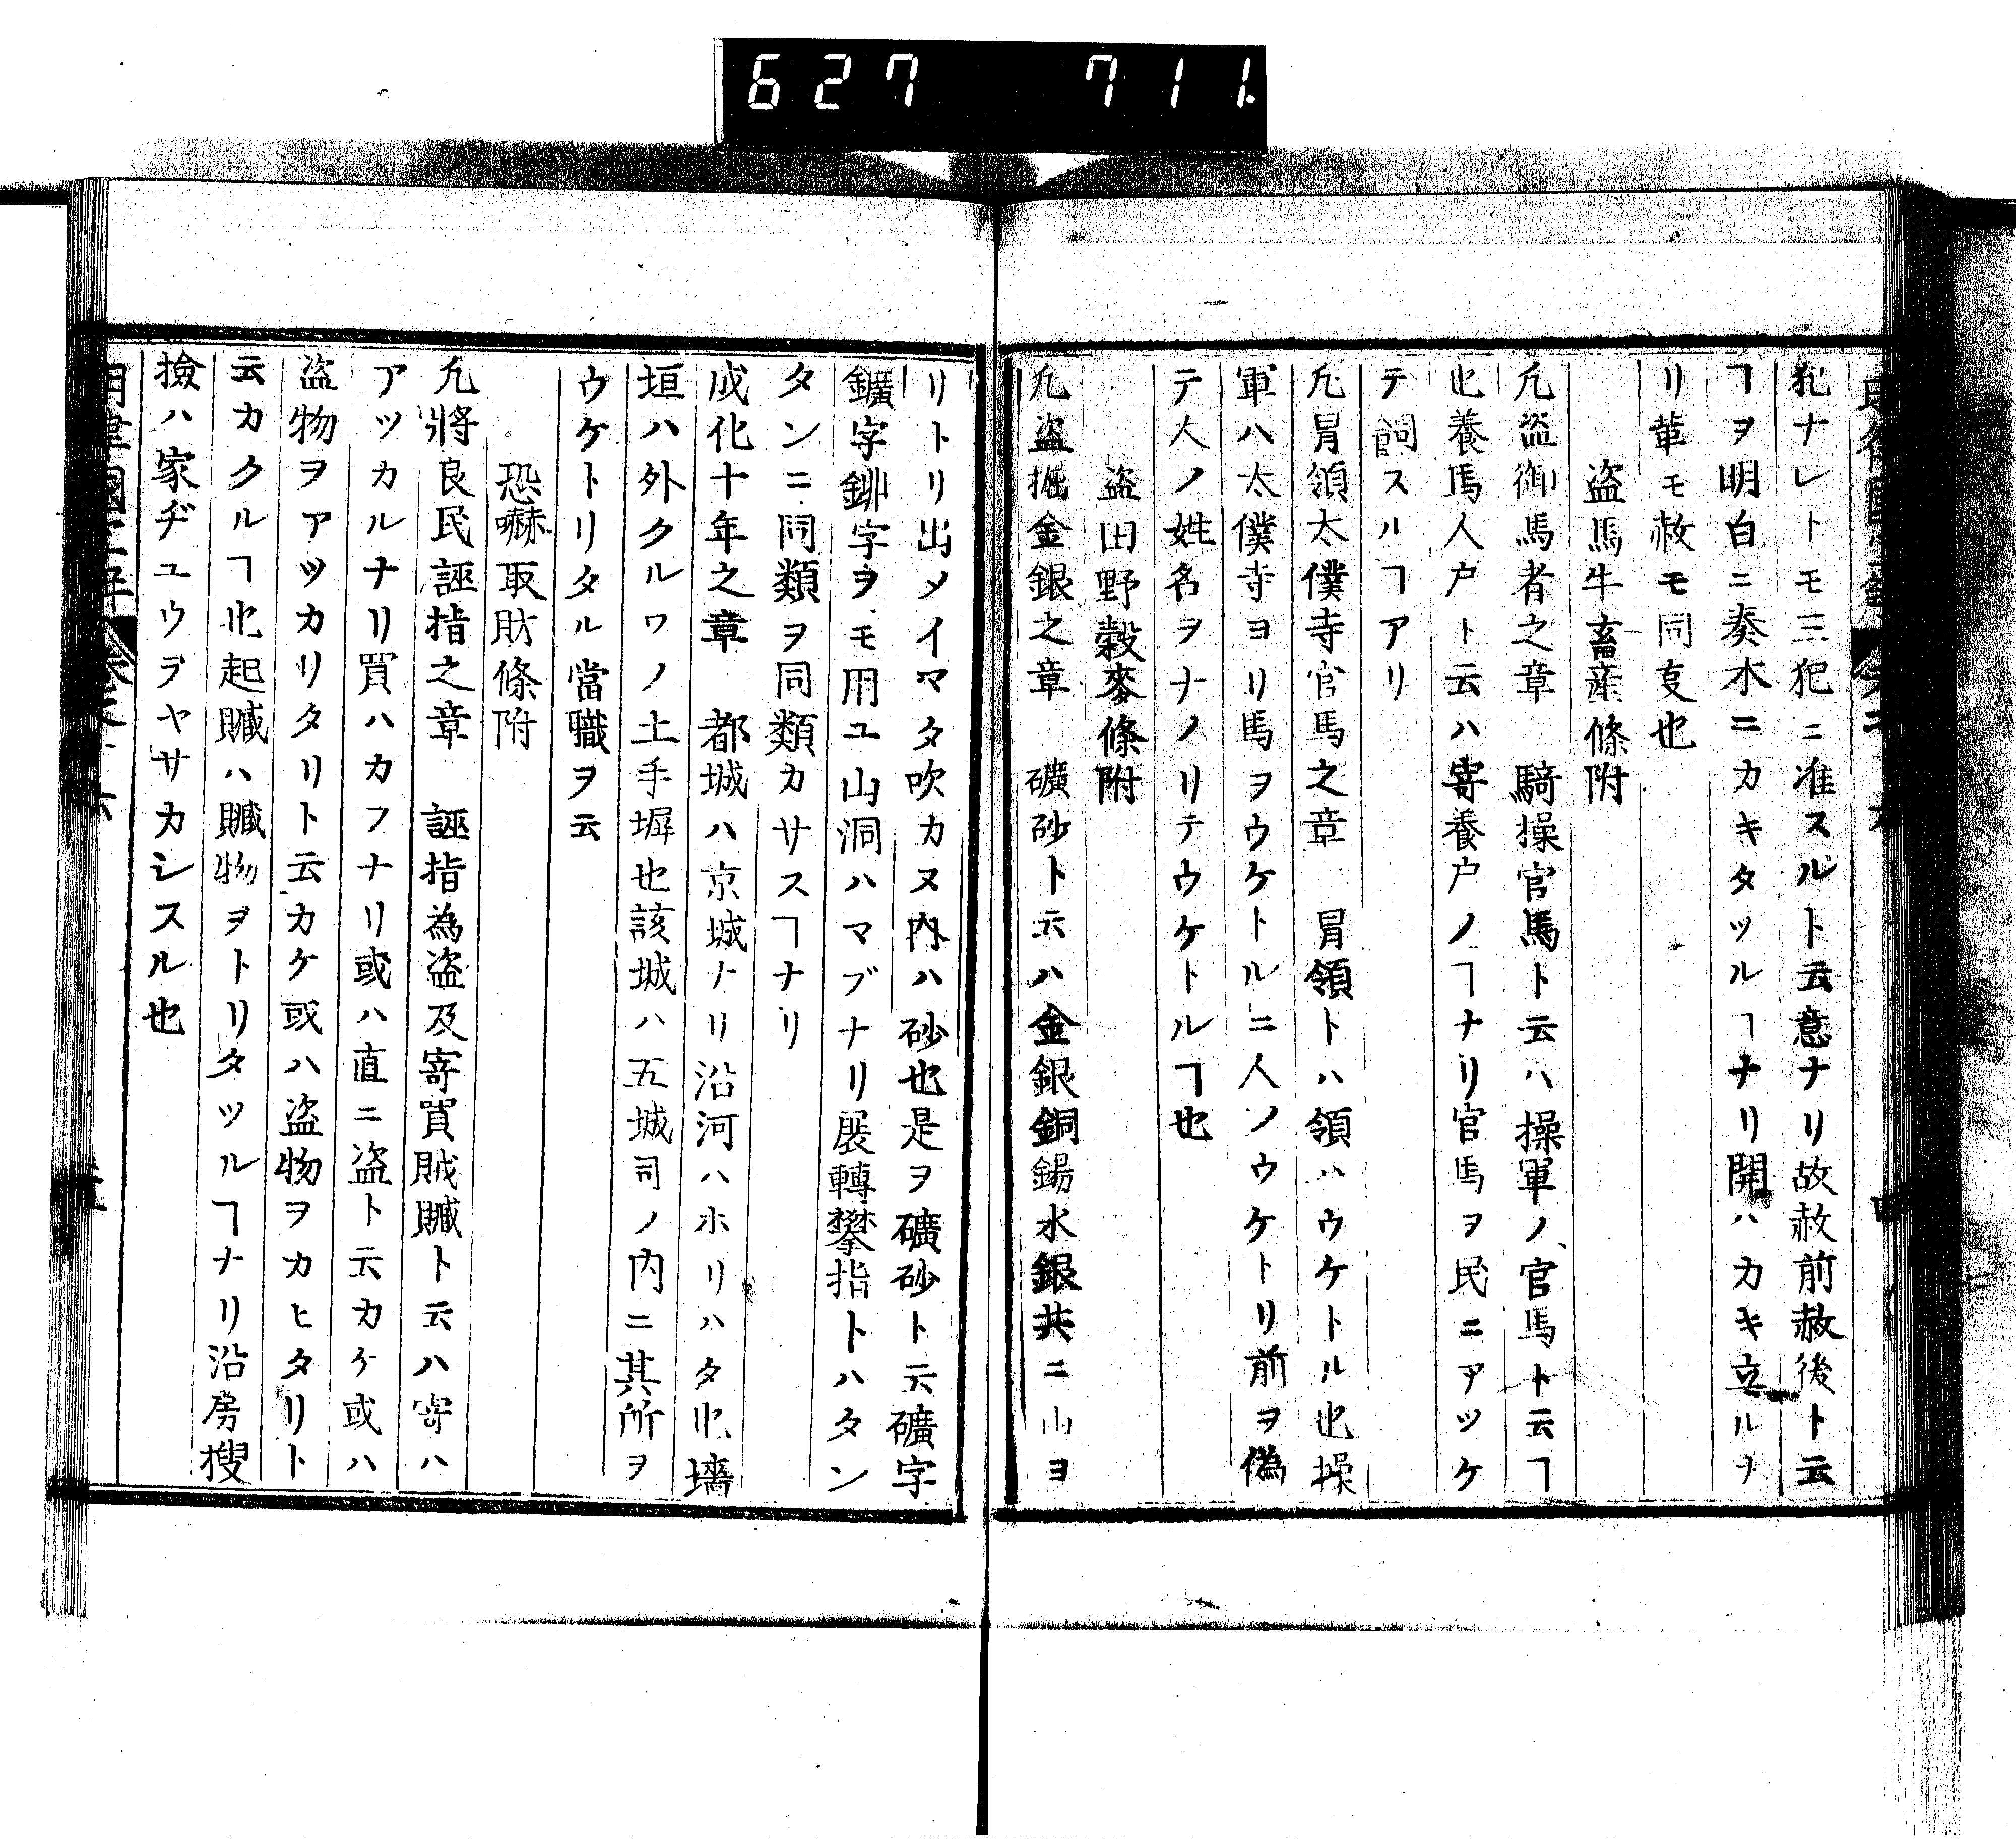 627 711
犯ナレトモ三犯ニ准スルト云意ナリ故赦前赦後ト云
ヿヲ明白ニ奏本ニカキタツルヿナリ開ハカキ立ルヲ
リ革モ赦モ同叓也
盗馬牛畜産條附
凢盗御馬者之章　騎操官馬ト云ハ操軍ノ官馬ト云ヿ
也養馬人戸ト云ハ寄養戸ノヿナリ官馬ヲ民ニアツケ
テ飼スルヿアリ
凢冐領太僕寺官馬之章　冐領トハ領ハウケトル也操
軍ハ太僕寺ヨリ馬ヲウケトルニ人ノウケトリ前ヲ偽
テ人ノ姓名ヲナノリテウケトルヿ也
盗田野穀麥條附
凢盗掘金銀之章　礦砂ト云ハ金銀銅錫水銀共ニ山ヨ
リトリ出メイマタ吹カヌ内ハ砂也是ヲ礦砂ト云礦字
鑛字鉚字ヲモ用ユ山洞ハマブナリ展轉攀指トハタン
タンニ同類ヲ同類カサスヿナリ
成化十年之章　都城ハ京城ナリ沿河ハホリハタ也墻
垣ハ外クルワノ土手塀也該城ハ五城司ノ内ニ其所ヲ
ウケトリタル當職ヲ云
恐嚇取財條附
凢將良民誣指之章　誣指為盗及寄買賊贓ト云ハ寄ハ
アツカルナリ買ハカフナリ或ハ直ニ盗ト云カケ或ハ
盗物ヲアツカリタリト云カケ或ハ盗物ヲカヒタリト
云カクルヿ也起贓ハ贓物ヲトリタツルヿナリ沿房搜
撿ハ家ヂユウヲヤサカシスル也